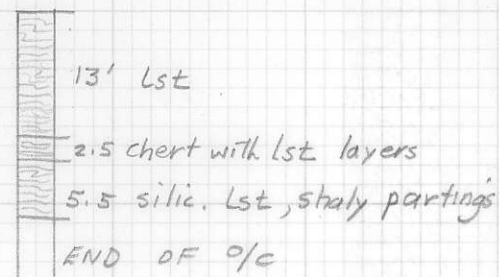 13' Lst
2.5 chert with lst layers
5.5 silic. Lst, shaly partings
END OF O/C